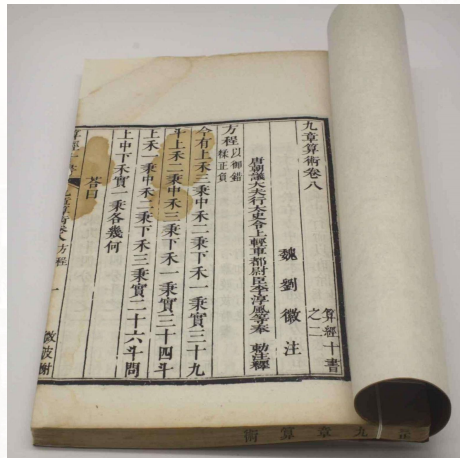 九章算術卷八
算經十書
之二
魏劉徽注
唐朝議大夫行太史令上輕車都尉臣李淳風等奉 勅注釋
方程
以御錯
糅正負
今有上禾三秉中禾二秉下禾一秉實三十九
斗上禾二秉中禾三秉下禾一秉實三十四斗
上禾一秉中禾二秉下禾三秉實二十六斗問
上中下禾實一秉各幾何
荅曰
九章算術卷八 方程
一
微波榭
術算章九